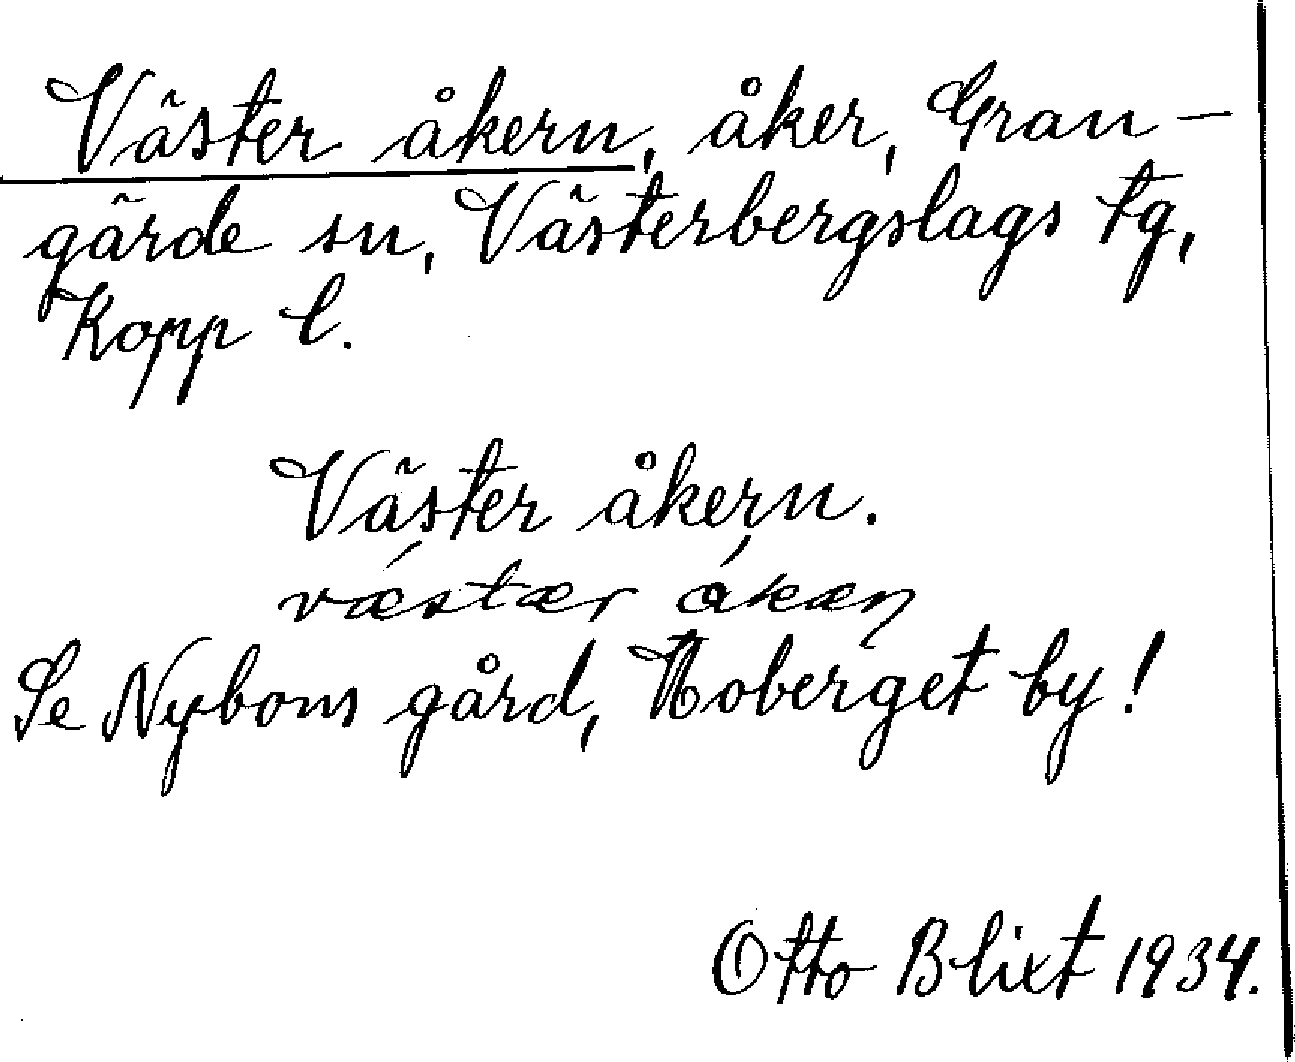 Väster åkern, åker, Gran-
gärde sn, Västerbergslags tg,
Kopp l.
Väster åkern.
vǽstær åkæn
Se Nybons gård, Moberget by!
Otto Blixt 1934.